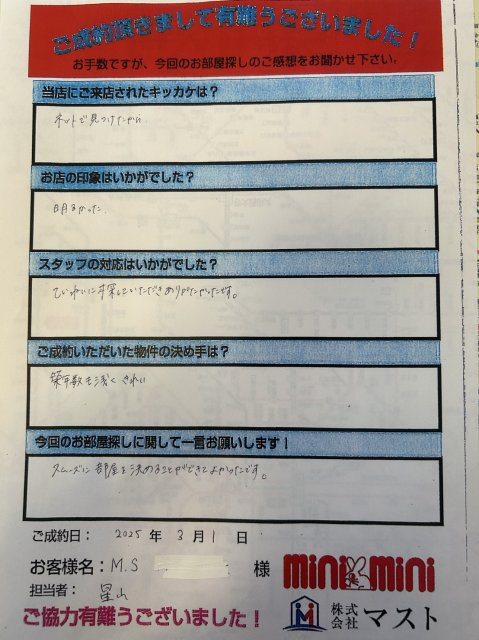 ご成約頂きまして有難うございました！
お手数ですが、今回のお部屋探しのご感想をお聞かせ下さい。
当店にご来店されたキッカケは？
ネットで見つけたから
お店の印象はいかがでした？
明るかった
スタッフの対応はいかがでした？
ていねいに探していただきありがたかったです。
ご成約いただいた物件の決め手は？
築年数も浅くきれい
今回のお部屋探しに関して一言お願いします！
スムーズに部屋を決めることができてよかったです。
ご成約日： 2025 年 3 月 1 日
お客様名： M.S 様
担当者： 星山
ご協力有難うございました！
mini mini
株式会社 マスト